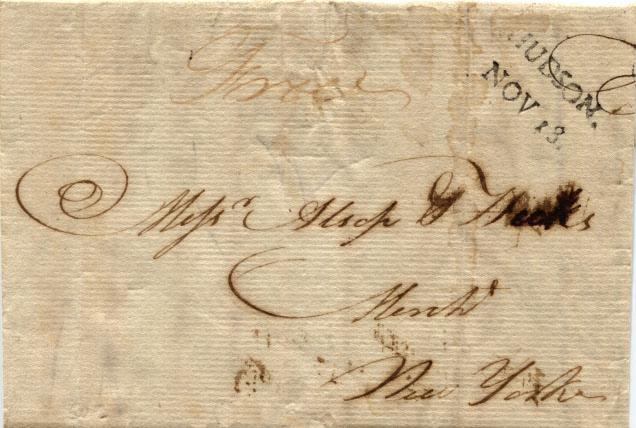 Free
HUDSON.
NOV 13.
Messrs Alsop & Weeks
Mercht
New York